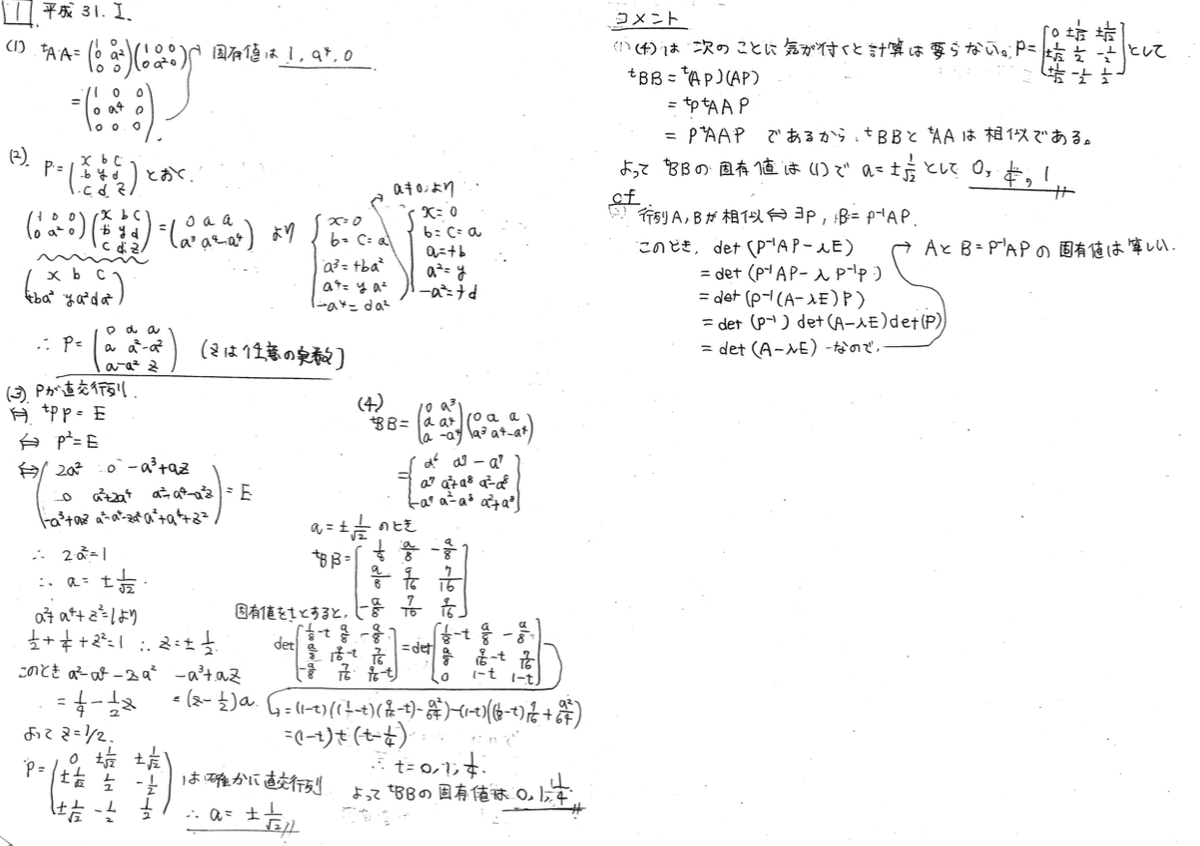 1 平成31. I.
(1) ᵗAA = (1 0 / 0 a² / 0 0)(1 0 0 / 0 a² 0) 固有値は 1, a⁴, 0
= (1 0 0 / 0 a⁴ 0 / 0 0 0).
(2). P = (x b c / b y d / c d z) とおく.
(1 0 0 / 0 a² 0)(x b c / b y d / c d z) = (0 a a / a³ a⁴ -a⁴) より { x=0 / b=c=a / a³=+ba² / a⁴=ya² / -a⁴=da² } a≠0より { x=0 / b=c=a / a=+b / a²=y / -a²=+d
(x b c / +ba² ya² da²)
∴ P = (0 a a / a a² -a² / a -a² z) (zは任意の実数)
(3) Pが直交行列.
⇔ ᵗPP = E
⇔ P² = E
⇔ (2a² 0 -a³+az / 0 a²+2a⁴ a²-a⁴-a²z / -a³+az a²-a⁴-za² a²+a⁴+z²) = E
∴ 2a²=1
∴ a = ±1/√2.
a²+a⁴+z²=1より
1/2+1/4+z²=1 ∴ z=±1/2.
このとき a²-a⁴-za² -a³+az
= 1/4-1/2z = (z-1/2)a
よって z=1/2.
P = (0 ±1/√2 ±1/√2 / ±1/√2 1/2 -1/2 / ±1/√2 -1/2 1/2) は確かに直交行列
∴ a = ±1/√2 //
(4)
ᵗBB = (0 a³ / a a⁴ / a -a⁴)(0 a a / a³ a⁴ -a⁴)
= (a⁶ a⁷ -a⁷ / a⁷ a²+a⁸ a²-a⁸ / -a⁷ a²-a⁸ a²+a⁸)
a = ±1/√2 のとき
ᵗBB = [1/8 a/8 -a/8 / a/8 9/16 7/16 / -a/8 7/16 9/16]
固有値をtとすると,
det[1/8-t a/8 -a/8 / a/8 9/16-t 7/16 / -a/8 7/16 9/16-t] = det[1/8-t a/8 -a/8 / a/8 9/16-t 7/16 / 0 1-t 1-t]
=(1-t)((1/8-t)(9/16-t)-a²/64)-(1-t)((1/8-t)7/16+a²/64)
=(1-t)t(t-1/4)
∴ t=0, 1, 1/4.
よって ᵗBBの固有値は 0, 1, 1/4. //
コメント
(1) (4)は 次のことに気が付くと計算は要らない。P=[0 ±1/√2 ±1/√2 / ±1/√2 1/2 -1/2 / ±1/√2 -1/2 1/2]として
ᵗBB = ᵗ(AP)(AP)
= ᵗPᵗAAP
= PᵗAAP であるから、ᵗBBとᵗAAは相似である。
よって ᵗBBの固有値は(1)で a=±1/√2として 0, 1/4, 1 //
cf
行列A, Bが相似⇔∃P, B=P⁻¹AP.
このとき, det(P⁻¹AP-λE) → AとB=P⁻¹APの固有値は等しい.
= det(P⁻¹AP-λP⁻¹P)
= det(P⁻¹(A-λE)P)
= det(P⁻¹)det(A-λE)det(P)
= det(A-λE) なので,